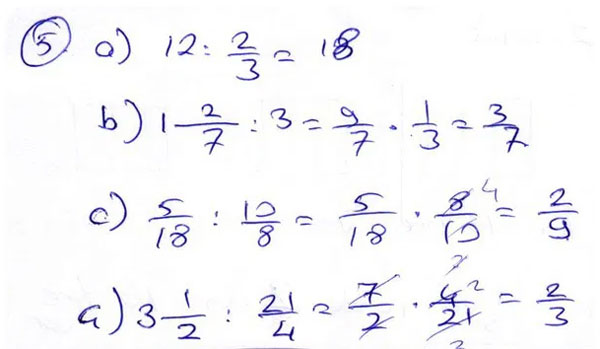 5) a) 12 : 2/3 = 18
b) 1 2/7 : 3 = 9/7 · 1/3 = 3/7
c) 5/18 : 10/8 = 5/18 · 8/10 4 = 2/9
d) 3 1/2 : 21/4 = 7/2 · 4/21 2 = 2/3